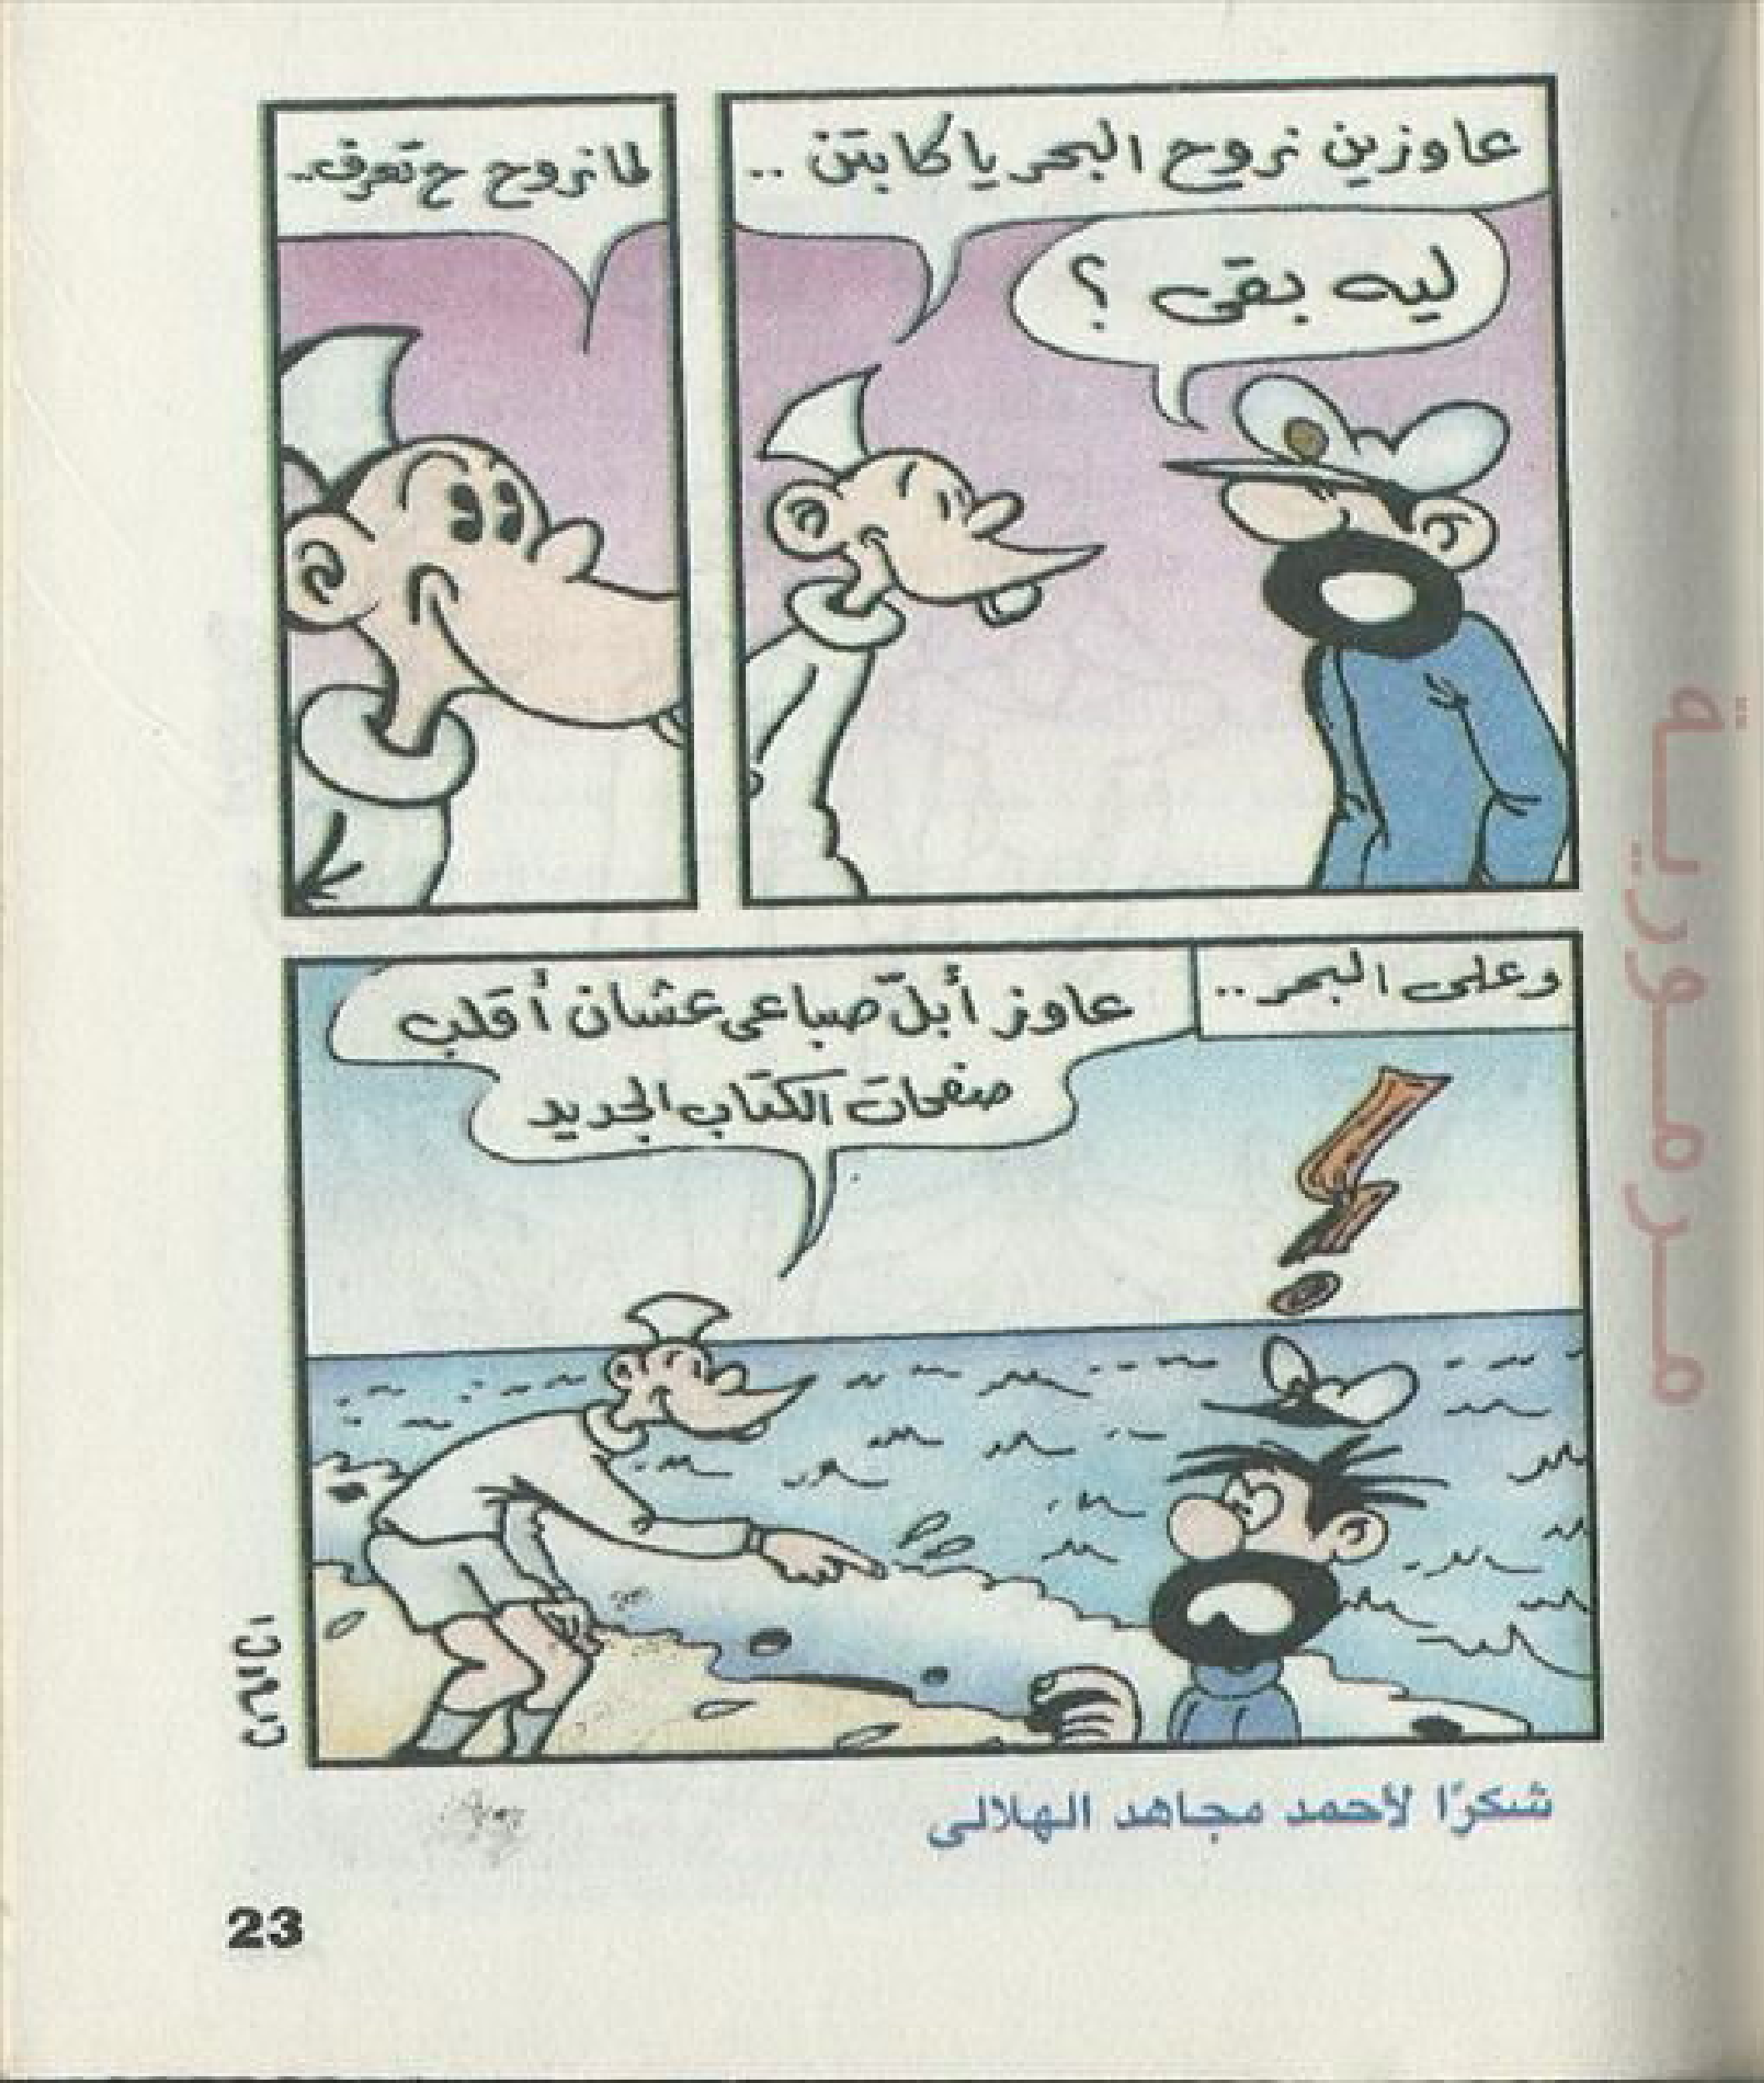 عاوزين نروح البحر يا كابتن ..
ليه بقى ؟
لما نروح ح تعرف ..
وعلى البحر ..
عاوز أبلّ صباعى عشان أقلب
صفحات الكتاب الجديد
شكرًا لأحمد مجاهد الهلالى
23
مرمورية